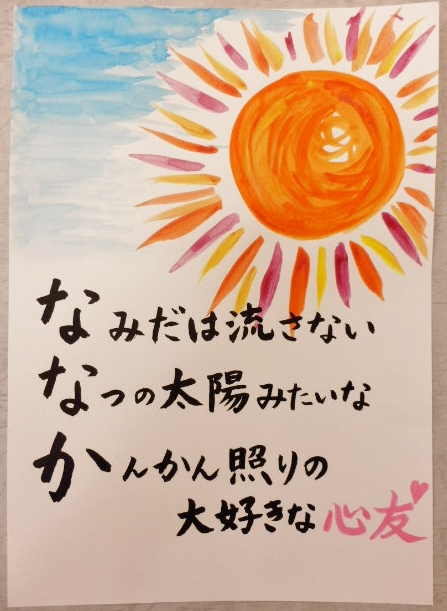 なみだは流さない
なつの太陽みたいな
かんかん照りの
大好きな心友